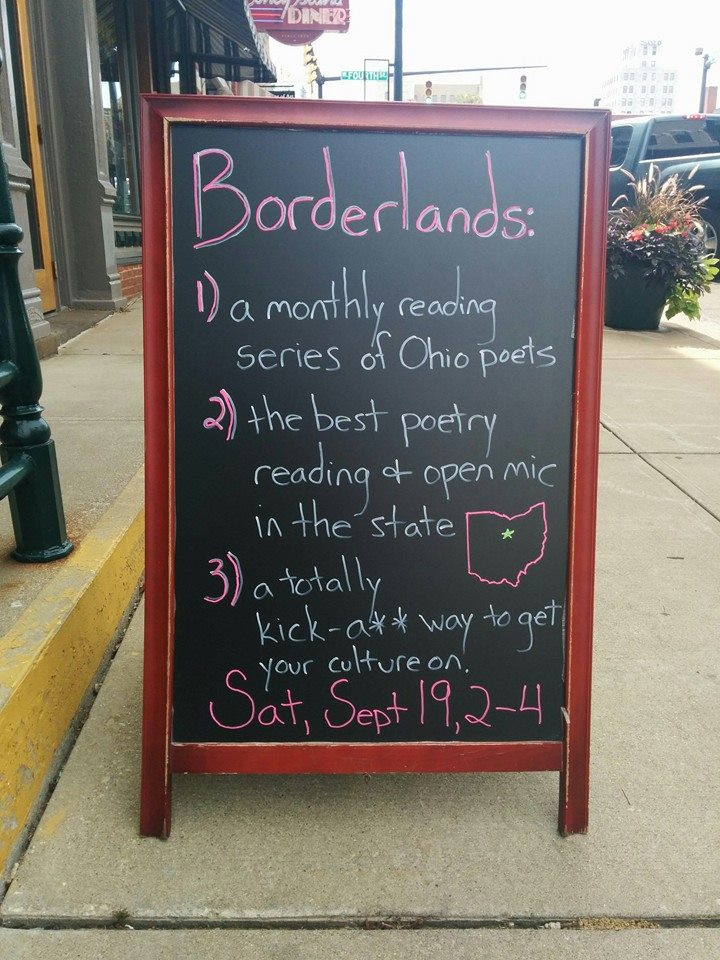 DINER
FOURTH ST
Borderlands:
1) a monthly reading
series of Ohio poets
2) the best poetry
reading & open mic
in the state
3) a totally
kick-a** way to get
your culture on.
Sat, Sept 19, 2-4